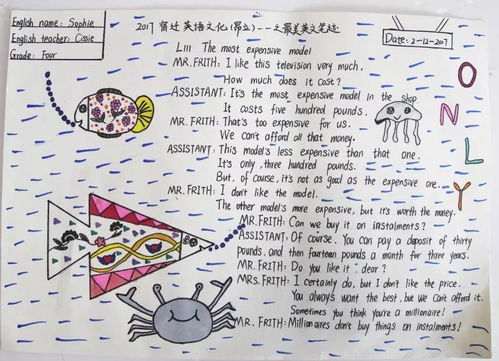 English name: Sophie
English teacher: Cissie
Grade: Four
2017 英语文化 (昂立) --- 之最美英文笔迹
Date: 2-12-2017
L111 The most expensive model
MR. FRITH: I like this television very much.
How much does it cost?
ASSISTANT: It's the most expensive model in the shop
It costs five hundred pounds.
MR. FRITH: That's too expensive for us.
We can't afford all that money.
ASSISTANT: This model's less expensive than that one.
It's only, three hundred pounds.
But, of course, it's not as good as the expensive one.
MR. FRITH: I don't like the model.
The other model's more expensive, but it's worth the money.
MR. FRITH: Can we buy it on instalments?
ASSISTANT: Of course. You can pay a deposit of thirty
pounds, and then fourteen pounds a month for three years.
MR. FRITH: Do you like it, dear?
MRS. FRITH: I certainly do, but I don't like the price.
You always want the best, but we can't afford it.
Sometimes you think you're a millionaire!
MR. FRITH: Millionaires don't buy things on instalments!
O
N
L
Y